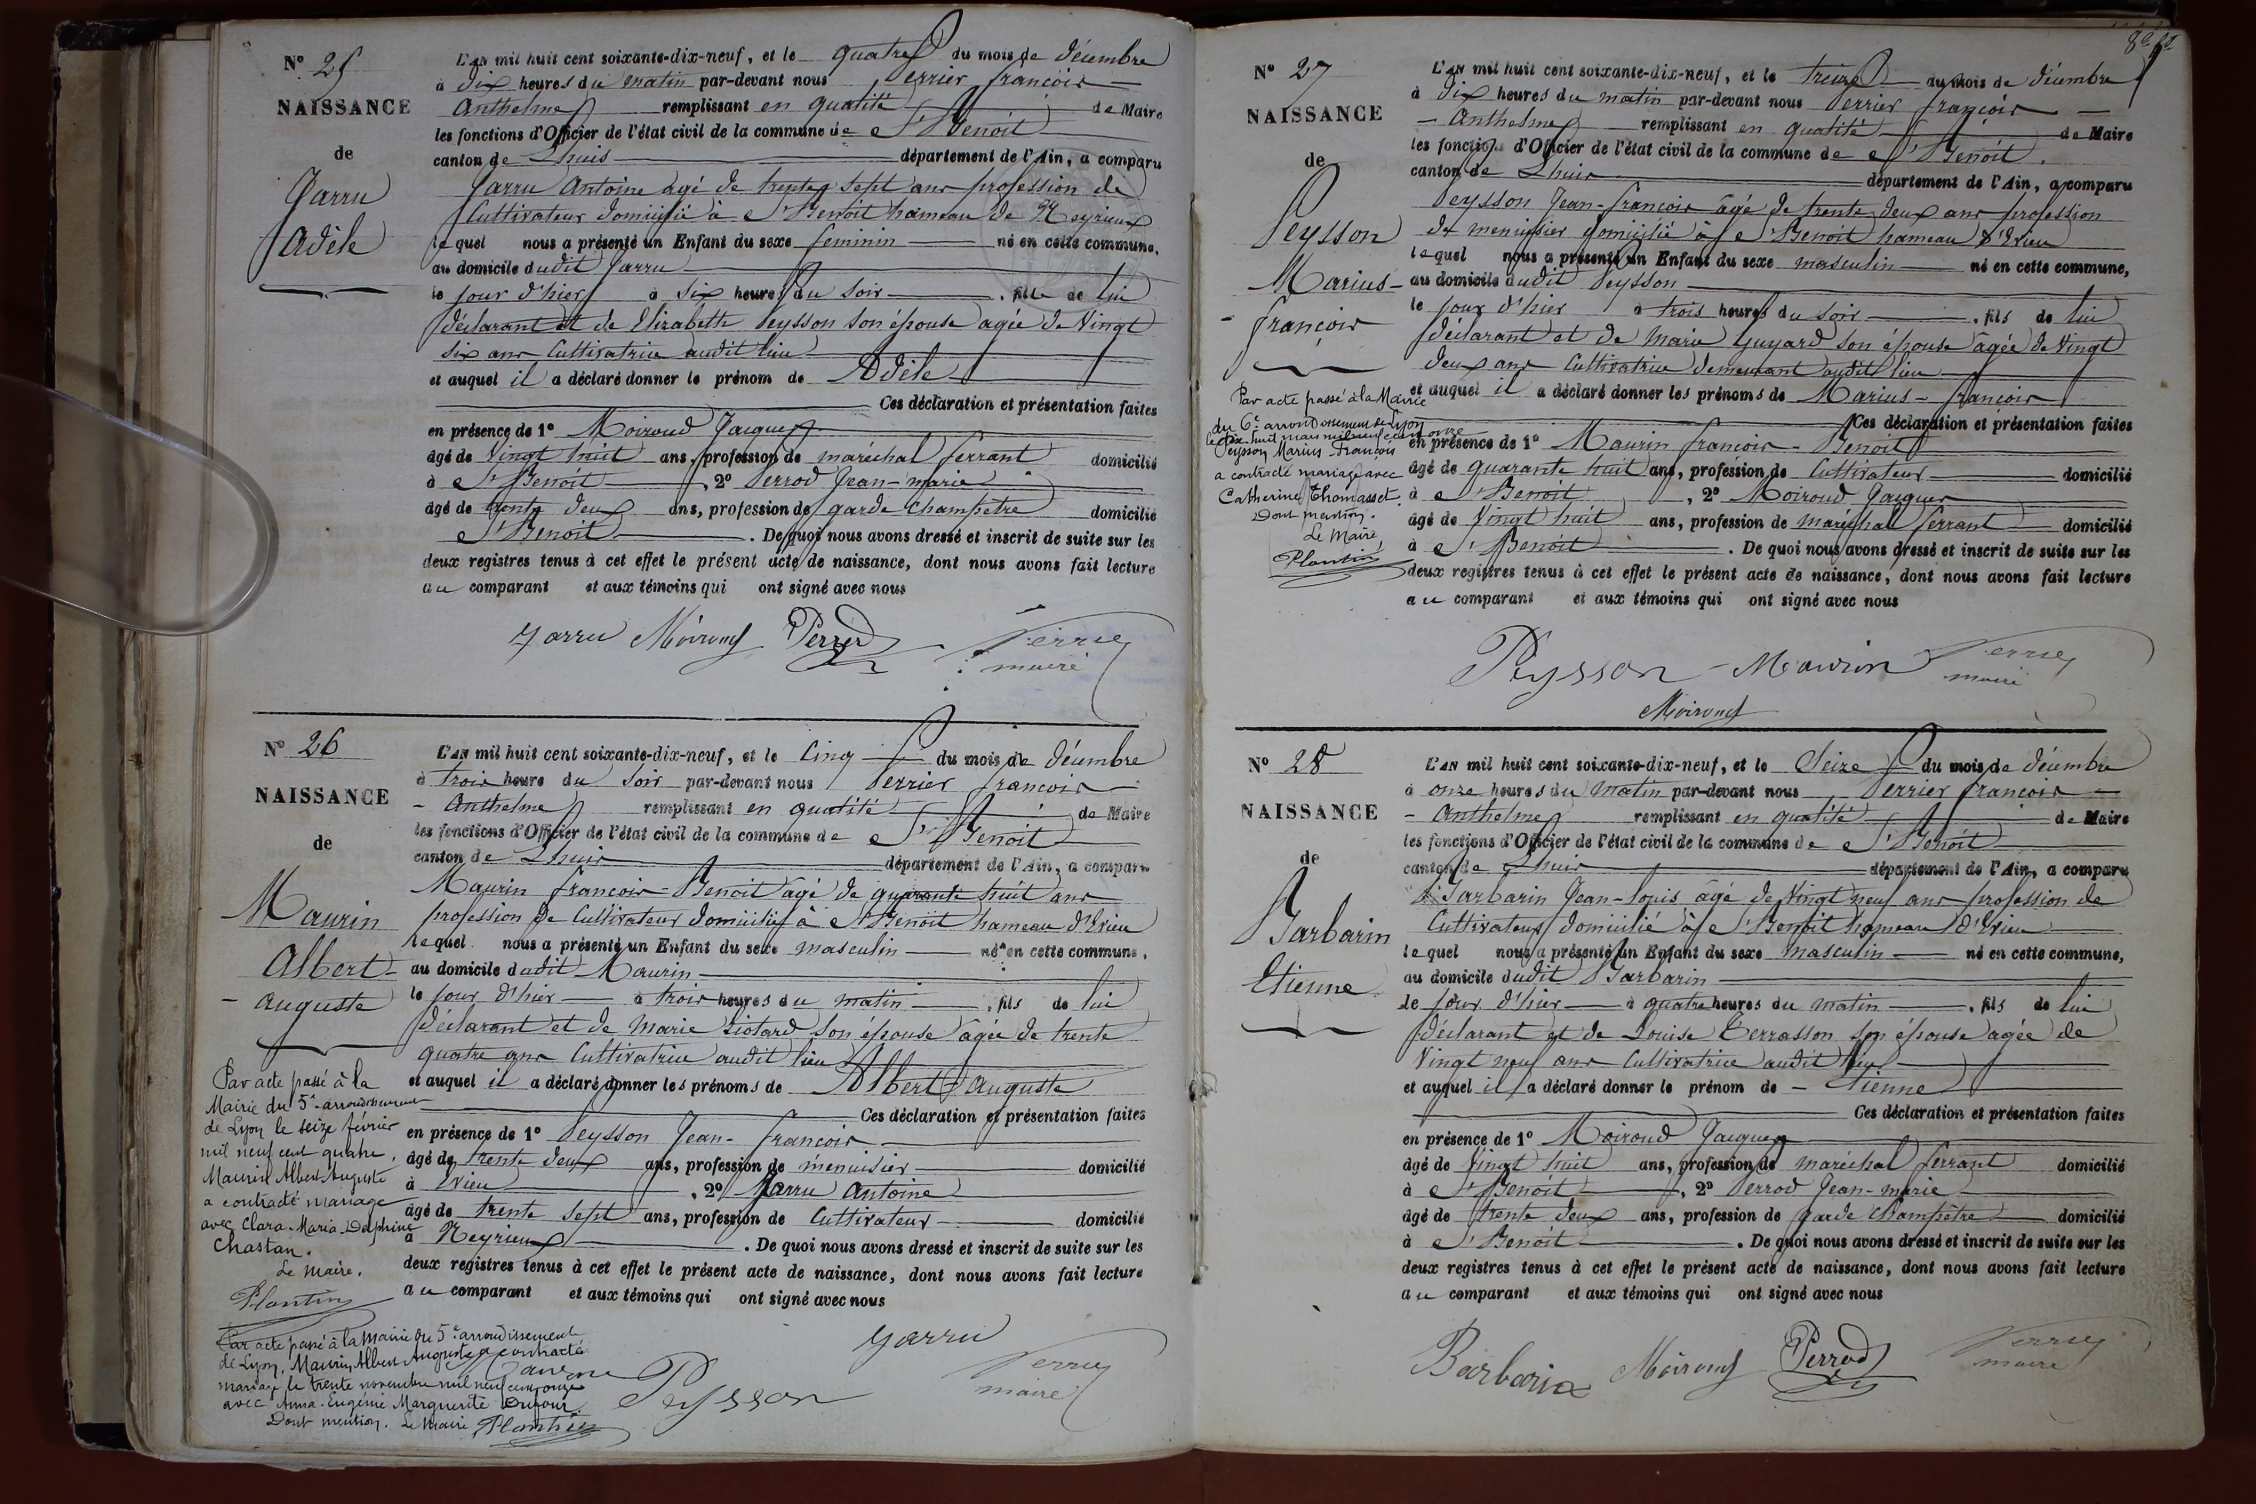 N° 25
NAISSANCE
de
Jarru
Adèle
L'AN mil huit cent soixante-dix-neuf, et le quatre du mois de décembre
à dix heures du matin par-devant nous Perrier françois
Anthelme remplissant en qualité de Maire
les fonctions d'Officier de l'état civil de la commune de St Benoit
canton de Lhuis département de l'Ain, a comparu
Jarru Antoine agé de trente sept ans profession de
Cultivateur domicilié à St Benoit hameau de Meyrieux
lequel nous a présenté un Enfant du sexe feminin né en cette commune,
au domicile dudit Jarru
le jour d'hier à six heures du soir fille de lui
déclarant et de Elizabeth Peysson son épouse agée de Vingt
six ans Cultivatrice audit lieu
et auquel il a déclaré donner le prénom de Adèle
Ces déclaration et présentation faites
en présence de 1° Moiroud Jacques
âgé de Vingt huit ans, profession de maréchal ferrant domicilié
à St Benoit, 2° Perrod Jean-marie
âgé de trente deux ans, profession de garde champêtre domicilié
St Benoit. De quoi nous avons dressé et inscrit de suite sur les
deux registres tenus à cet effet le présent acte de naissance, dont nous avons fait lecture
au comparant et aux témoins qui ont signé avec nous
Jarru Moiroud Perrod Perrier
maire
N° 26
NAISSANCE
de
Maurin
Albert-
-auguste
Par acte passé à la
Mairie du 5e arrondissement
de Lyon le seize février
mil neuf cent quatre,
Maurin Albert Auguste
a contracté mariage
avec Clara-Maria-Delphine
Chastan.
Le Maire.
Plantin
Par acte passé à la Mairie du 5e arrondissement
de Lyon, Maurin Albert Auguste a contracté
mariage le trente novembre mil neuf cent onze
avec Anna-Eugénie Marguerite Dufour
Dont mention. Le Maire Plantin
L'AN mil huit cent soixante-dix-neuf, et le Cinq du mois de décembre
à trois heure du soir par-devant nous Perrier françois
- Anthelme remplissant en qualité de Maire
les fonctions d'Officier de l'état civil de la commune de St Benoit
canton de Lhuis département de l'Ain, a comparu
Maurin françois-Benoit âgé de quarante huit ans
profession de Cultivateur domicilié à St Benoit hameau d'Evieu
lequel nous a présenté un Enfant du sexe masculin né en cette commune,
au domicile dudit Maurin
le jour d'hier à trois heures du matin, fils de lui
déclarant et de Marie Liotard son épouse âgée de trente
quatre ans Cultivatrice audit lieu
et auquel il a déclaré donner les prénoms de Albert-auguste
Ces déclaration et présentation faites
en présence de 1° Peysson Jean-françois
âgé de trente deux ans, profession de menuisier domicilié
à Evieu, 2° Jarru Antoine
âgé de trente sept ans, profession de Cultivateur domicilié
à Meyrieux. De quoi nous avons dressé et inscrit de suite sur les
deux registres tenus à cet effet le présent acte de naissance, dont nous avons fait lecture
au comparant et aux témoins qui ont signé avec nous
Jarru
Maurin Peysson Perrier
maire
N° 27
NAISSANCE
de
Peysson
Marius-
-françois
Par acte passé à la Mairie
du 6e arrondissement de Lyon
le dix-huit mars mil neuf cent onze
Peysson Marius-François
a contracté mariage avec
Catherine Thomasset
Dont mention.
Le Maire
Plantin
L'AN mil huit cent soixante-dix-neuf, et le treize du mois de décembre
à dix heures du matin par-devant nous Perrier françois
- Anthelme remplissant en qualité de Maire
les fonctions d'Officier de l'état civil de la commune de St Benoit.
canton de Lhuis département de l'Ain, a comparu
Peysson Jean-françois âgé de trente deux ans profession
de menuisier domicilié à St Benoit hameau d'Evieu
lequel nous a présenté un Enfant du sexe masculin né en cette commune,
au domicile dudit Peysson
le jour d'hier à trois heures du soir, fils de lui
déclarant et de Marie Guyard son épouse âgée de Vingt
deux ans Cultivatrice demeurant audit lieu
et auquel il a déclaré donner les prénoms de Marius-françois
Ces déclaration et présentation faites
en présence de 1° Maurin françois-Benoit
âgé de quarante huit ans, profession de Cultivateur domicilié
à St Benoit, 2° Moiroud Jacques
âgé de Vingt huit ans, profession de maréchal ferrant domicilié
à St Benoit. De quoi nous avons dressé et inscrit de suite sur les
deux registres tenus à cet effet le présent acte de naissance, dont nous avons fait lecture
au comparant et aux témoins qui ont signé avec nous
Peysson Maurin Perrier
maire
Moiroud
N° 28
NAISSANCE
de
Barbarin
Etienne
L'AN mil huit cent soixante-dix-neuf, et le Seize du mois de décembre
à onze heures du matin par-devant nous Perrier françois
- Anthelme remplissant en qualité de Maire
les fonctions d'Officier de l'état civil de la commune de St Benoit
canton de Lhuis département de l'Ain, a comparu
Barbarin Jean-louis âgé de Vingt neuf ans profession de
Cultivateur domicilié à St Benoit hameau d'Evieu
lequel nous a présenté un Enfant du sexe masculin né en cette commune,
au domicile dudit Barbarin
le jour d'hier à quatre heures du matin, fils de lui
déclarant et de Louise Terrasson son épouse agée de
Vingt neuf ans Cultivatrice audit lieu
et auquel il a déclaré donner le prénom de - Etienne
Ces déclaration et présentation faites
en présence de 1° Moiroud Jacques
âgé de Vingt huit ans, profession de maréchal ferrant domicilié
à St Benoit, 2° Perrod Jean-marie
âgé de trente deux ans, profession de garde champêtre domicilié
à St Benoit. De quoi nous avons dressé et inscrit de suite sur les
deux registres tenus à cet effet le présent acte de naissance, dont nous avons fait lecture
au comparant et aux témoins qui ont signé avec nous
Barbarin Moiroud Perrod Perrier
maire